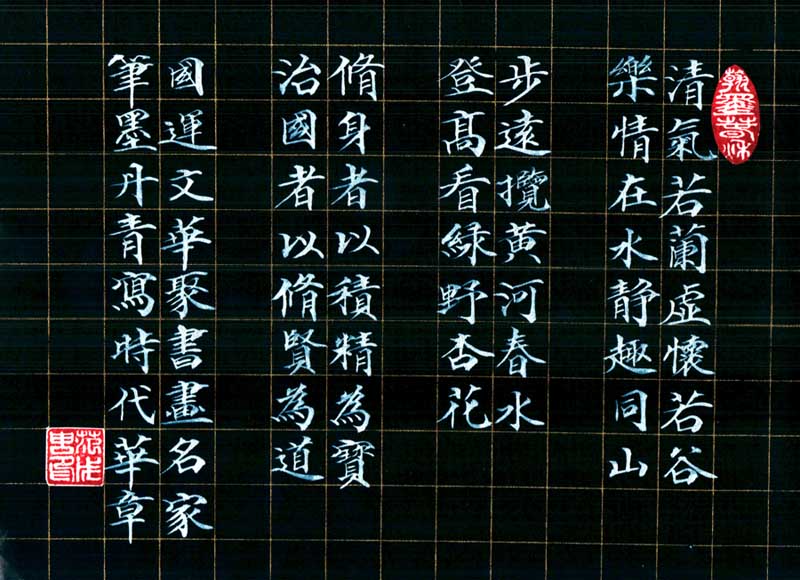 清氣若蘭虛懷若谷
樂情在水静趣同山
步遠攬黄河春水
登髙看緑野杏花
脩身者以積精為寶
治國者以脩賢為道
國運文華聚書畫名家
筆墨丹青寫時代華章